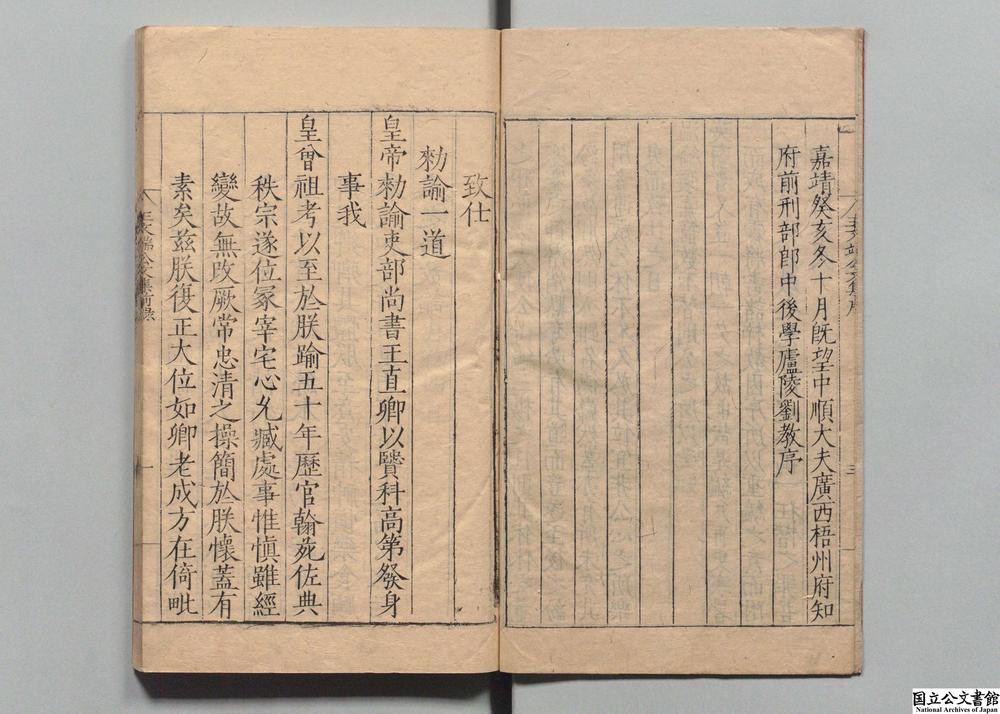 嘉靖癸亥冬十月旣望中順大夫廣西梧州府知
府前刑部郎中後學廬陵劉教序
致仕
勑諭一道
皇帝勑諭吏部尚書王直卿以賢科高第發身
事我
皇曾祖考以至於朕踰五十年歷官翰苑佐典
秩宗遂位冡宰宅心允臧處事惟慎雖經
變故無改厥常忠清之操簡於朕懷蓋有
素矣兹朕復正大位如卿老成方在倚毗
国立公文書館
National Archives of Japan